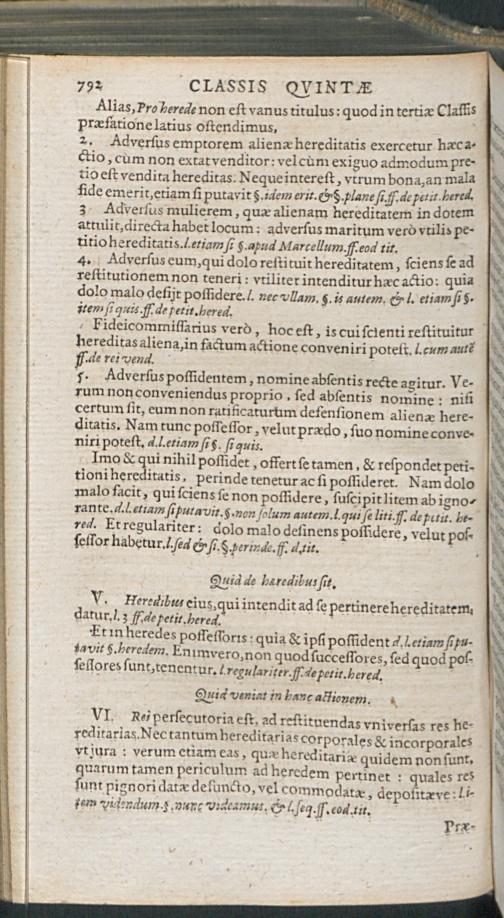 792 CLASSIS QVINTÆ
Alias, Pro herede non est vanus titulus: quod in tertiæ Classis
præfatione latius ostendimus.
2. Adversus emptorem alienæ hereditatis exercetur hæc a-
ctio, cùm non extat venditor: vel cùm exiguo admodum pre-
tio est vendita hereditas. Neque interest, vtrum bona, an mala
fide emerit, etiam si putavit §. idem erit. & §. plane si. ff. de petit. hered.
3 Adversus mulierem, quæ alienam hereditatem in dotem
attulit, directa habet locum: adversus maritum verò vtilis pe-
titio hereditatis. l. etiam si §. apud Marcellum. ff. eod tit.
4. Adversus eum, qui dolo restituit hereditatem, sciens se ad
restitutionem non teneri: vtiliter intenditur hæc actio: quia
dolo malo desijt possidere. l. nec vllam. §. is autem. & l. etiam si §.
item si quis. ff. de petit. hered.
Fideicommissarius verò, hoc est, is cui scienti restituitur
hereditas aliena, in factum actione conveniri potest. l. cum autē
ff. de rei vend.
5. Adversus possidentem, nomine absentis recte agitur. Ve-
rum non conveniendus proprio, sed absentis nomine: nisi
certum sit, eum non ratificaturum defensionem alienæ here-
ditatis. Nam tunc possessor, velut prædo, suo nomine conve-
niri potest. d. l. etiam si §. si quis.
Imo & qui nihil possidet, offert se tamen, & respondet peti-
tioni hereditatis, perinde tenetur ac si possideret. Nam dolo
malo facit, qui sciens se non possidere, suscipit litem ab igno-
rante. d. l. etiam si putavit. §. non solum autem. l. qui se liti. ff. de petit. he-
red. Et regulariter: dolo malo desinens possidere, velut pos-
sessor habetur. l. sed & si. §. perinde. ff. d. tit.
Quid de hæredibus sit.
V. Heredibus eius, qui intendit ad se pertinere hereditatem,
datur. l. 3 ff. de petit. hered.
Et in heredes possessoris: quia & ipsi possident d. l. etiam si pu-
tavit §. heredem. Enimvero, non quod successores, sed quod pos-
sessores sunt, tenentur. l. regulariter. ff. de petit. hered.
Quid veniat in hanc actionem.
VI. Rei persecutoria est, ad restituendas vniversas res he-
reditarias. Nec tantum hereditarias corporales & incorporales
vt jura: verum etiam eas, quæ hereditariæ quidem non sunt,
quarum tamen periculum ad heredem pertinet: quales res
sunt pignori datæ defuncto, vel commodatæ, depositæve: l. i-
tem videndum. §. nunc videamus. & l. seq. ff. eod. tit.
Præ-